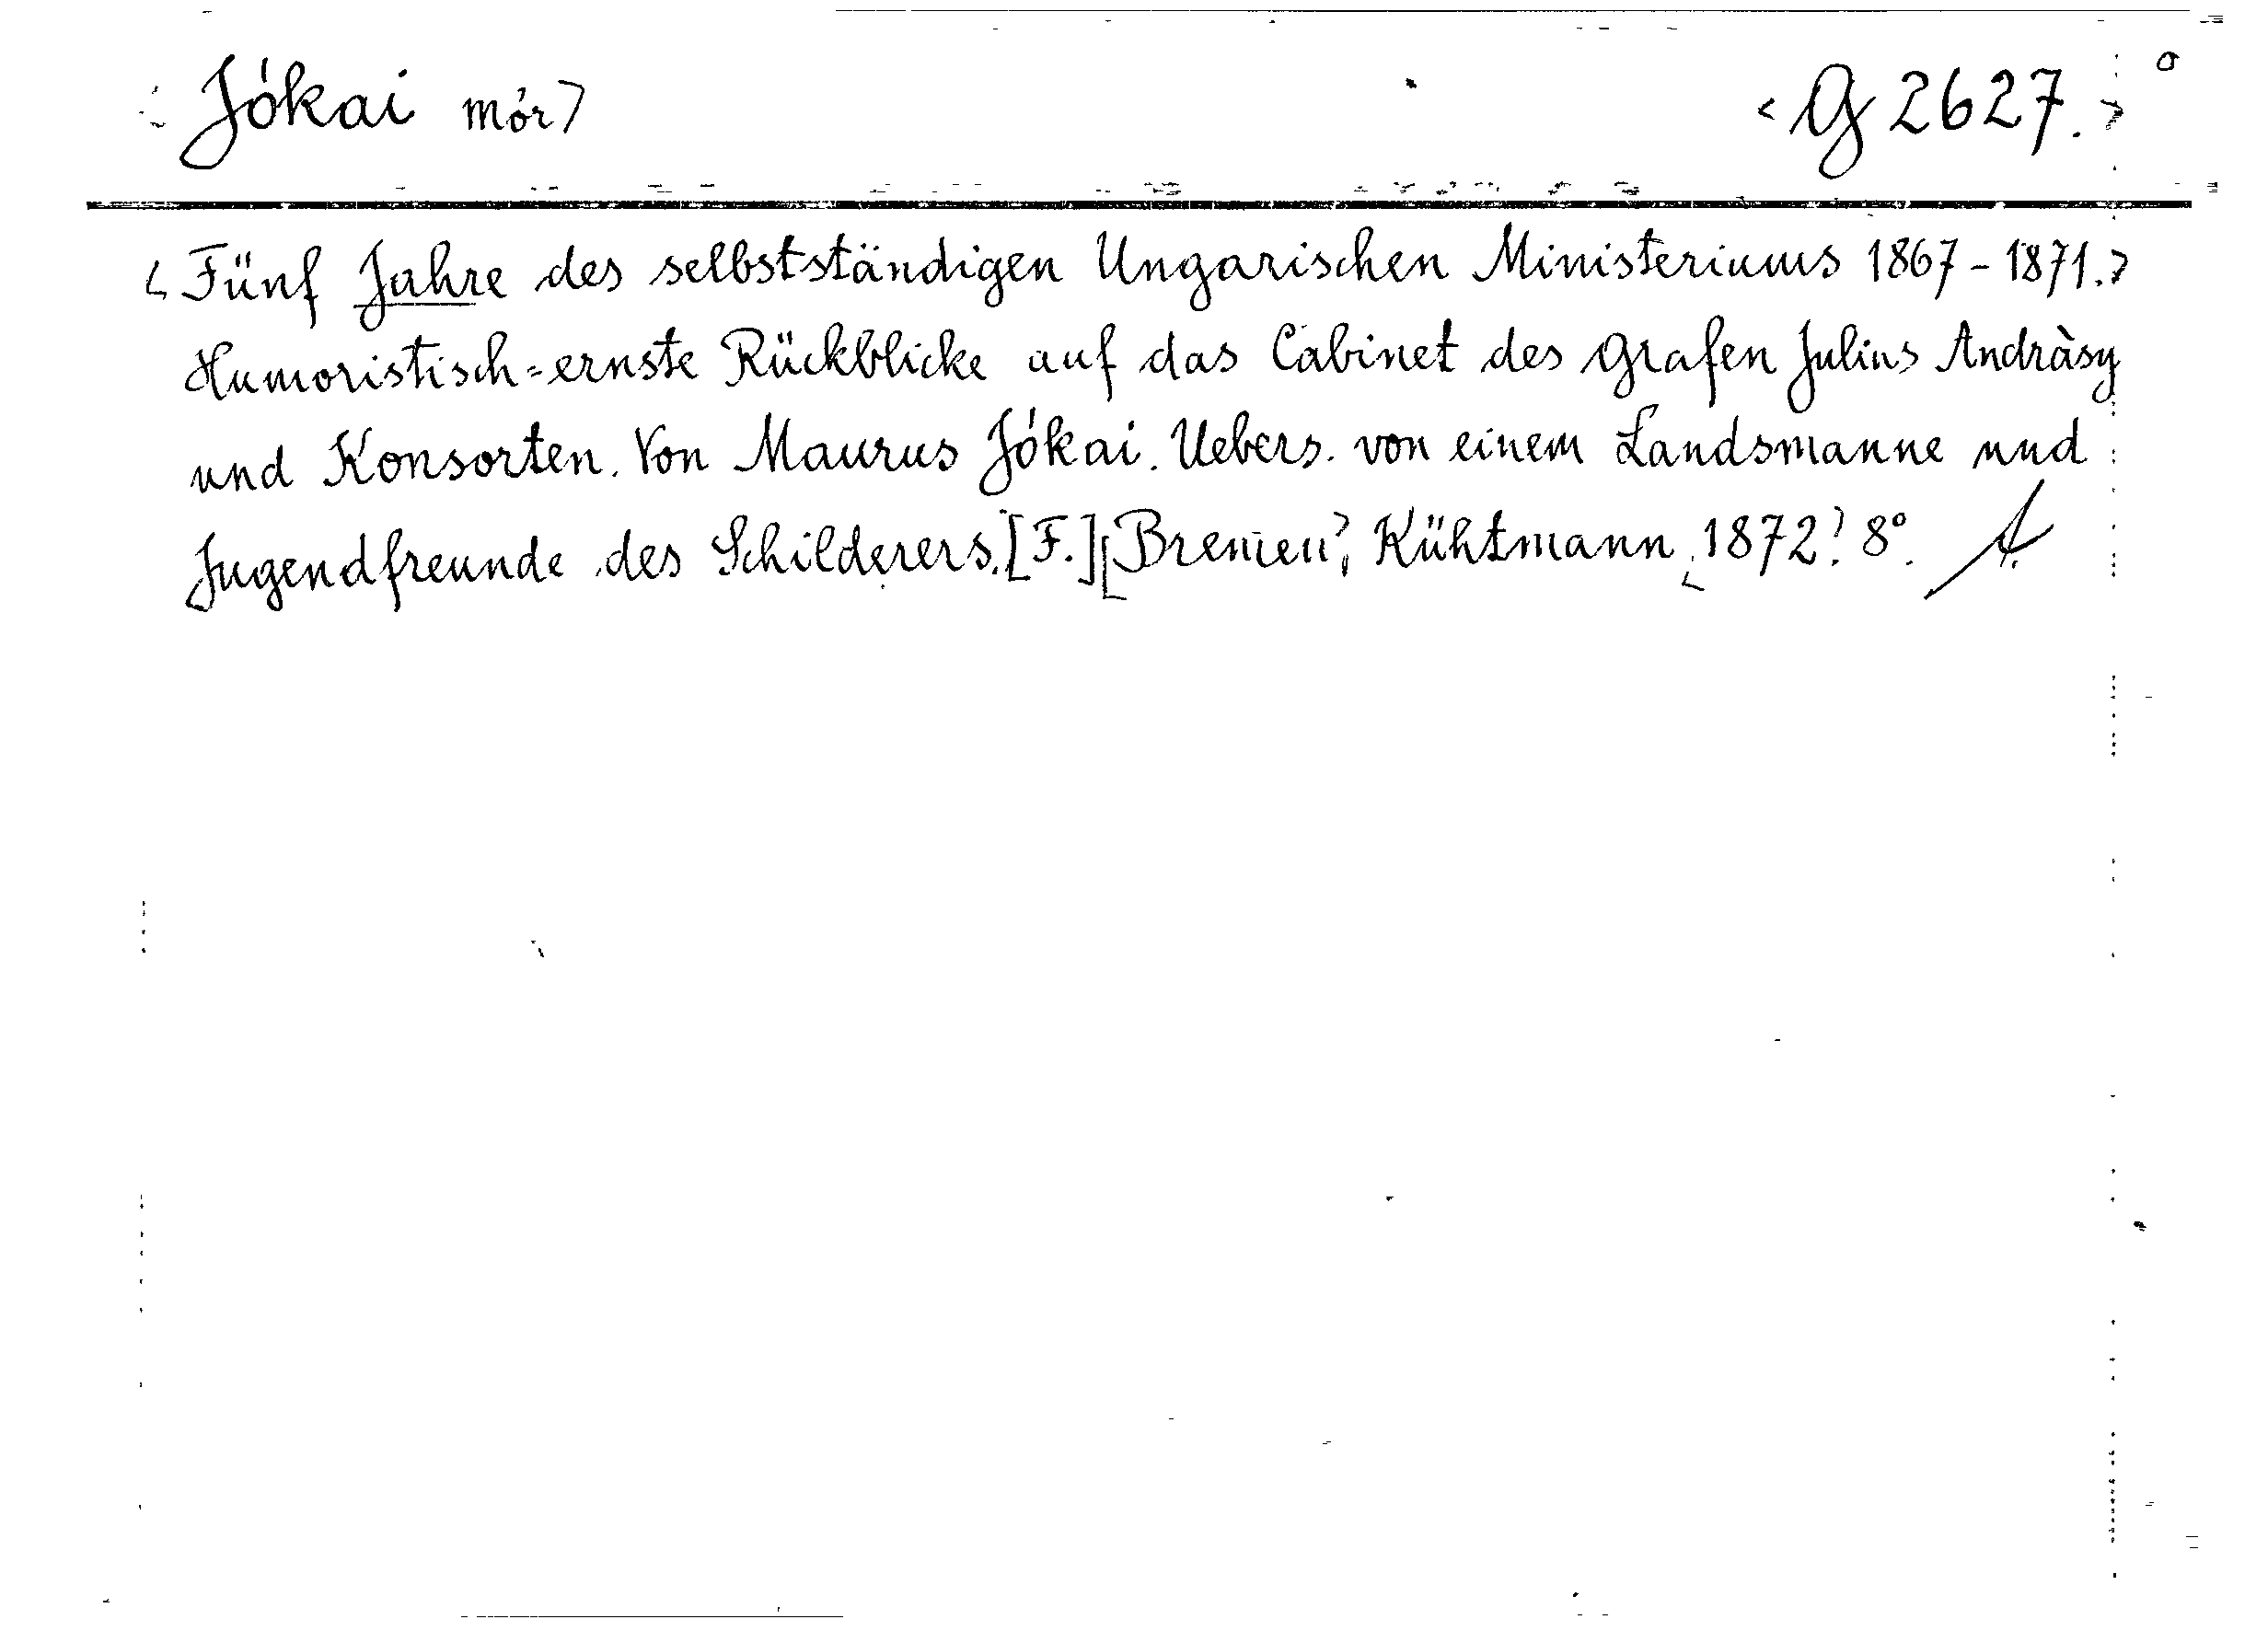 Jókai Mór> <G 2627.>
<Fünf Jahre des selbstständigen Ungarischen Ministeriums 1867-1871.>
Humoristisch=ernste Rückblicke auf das Cabinet des Grafen Julius Andràsy
und Konsorten. Von Maurus Jókai. Uebers. von einem Landsmanne und
Jugendfreunde des Schilderers. [F.] <Bremen>, Kühtmann, <1872> 8°.